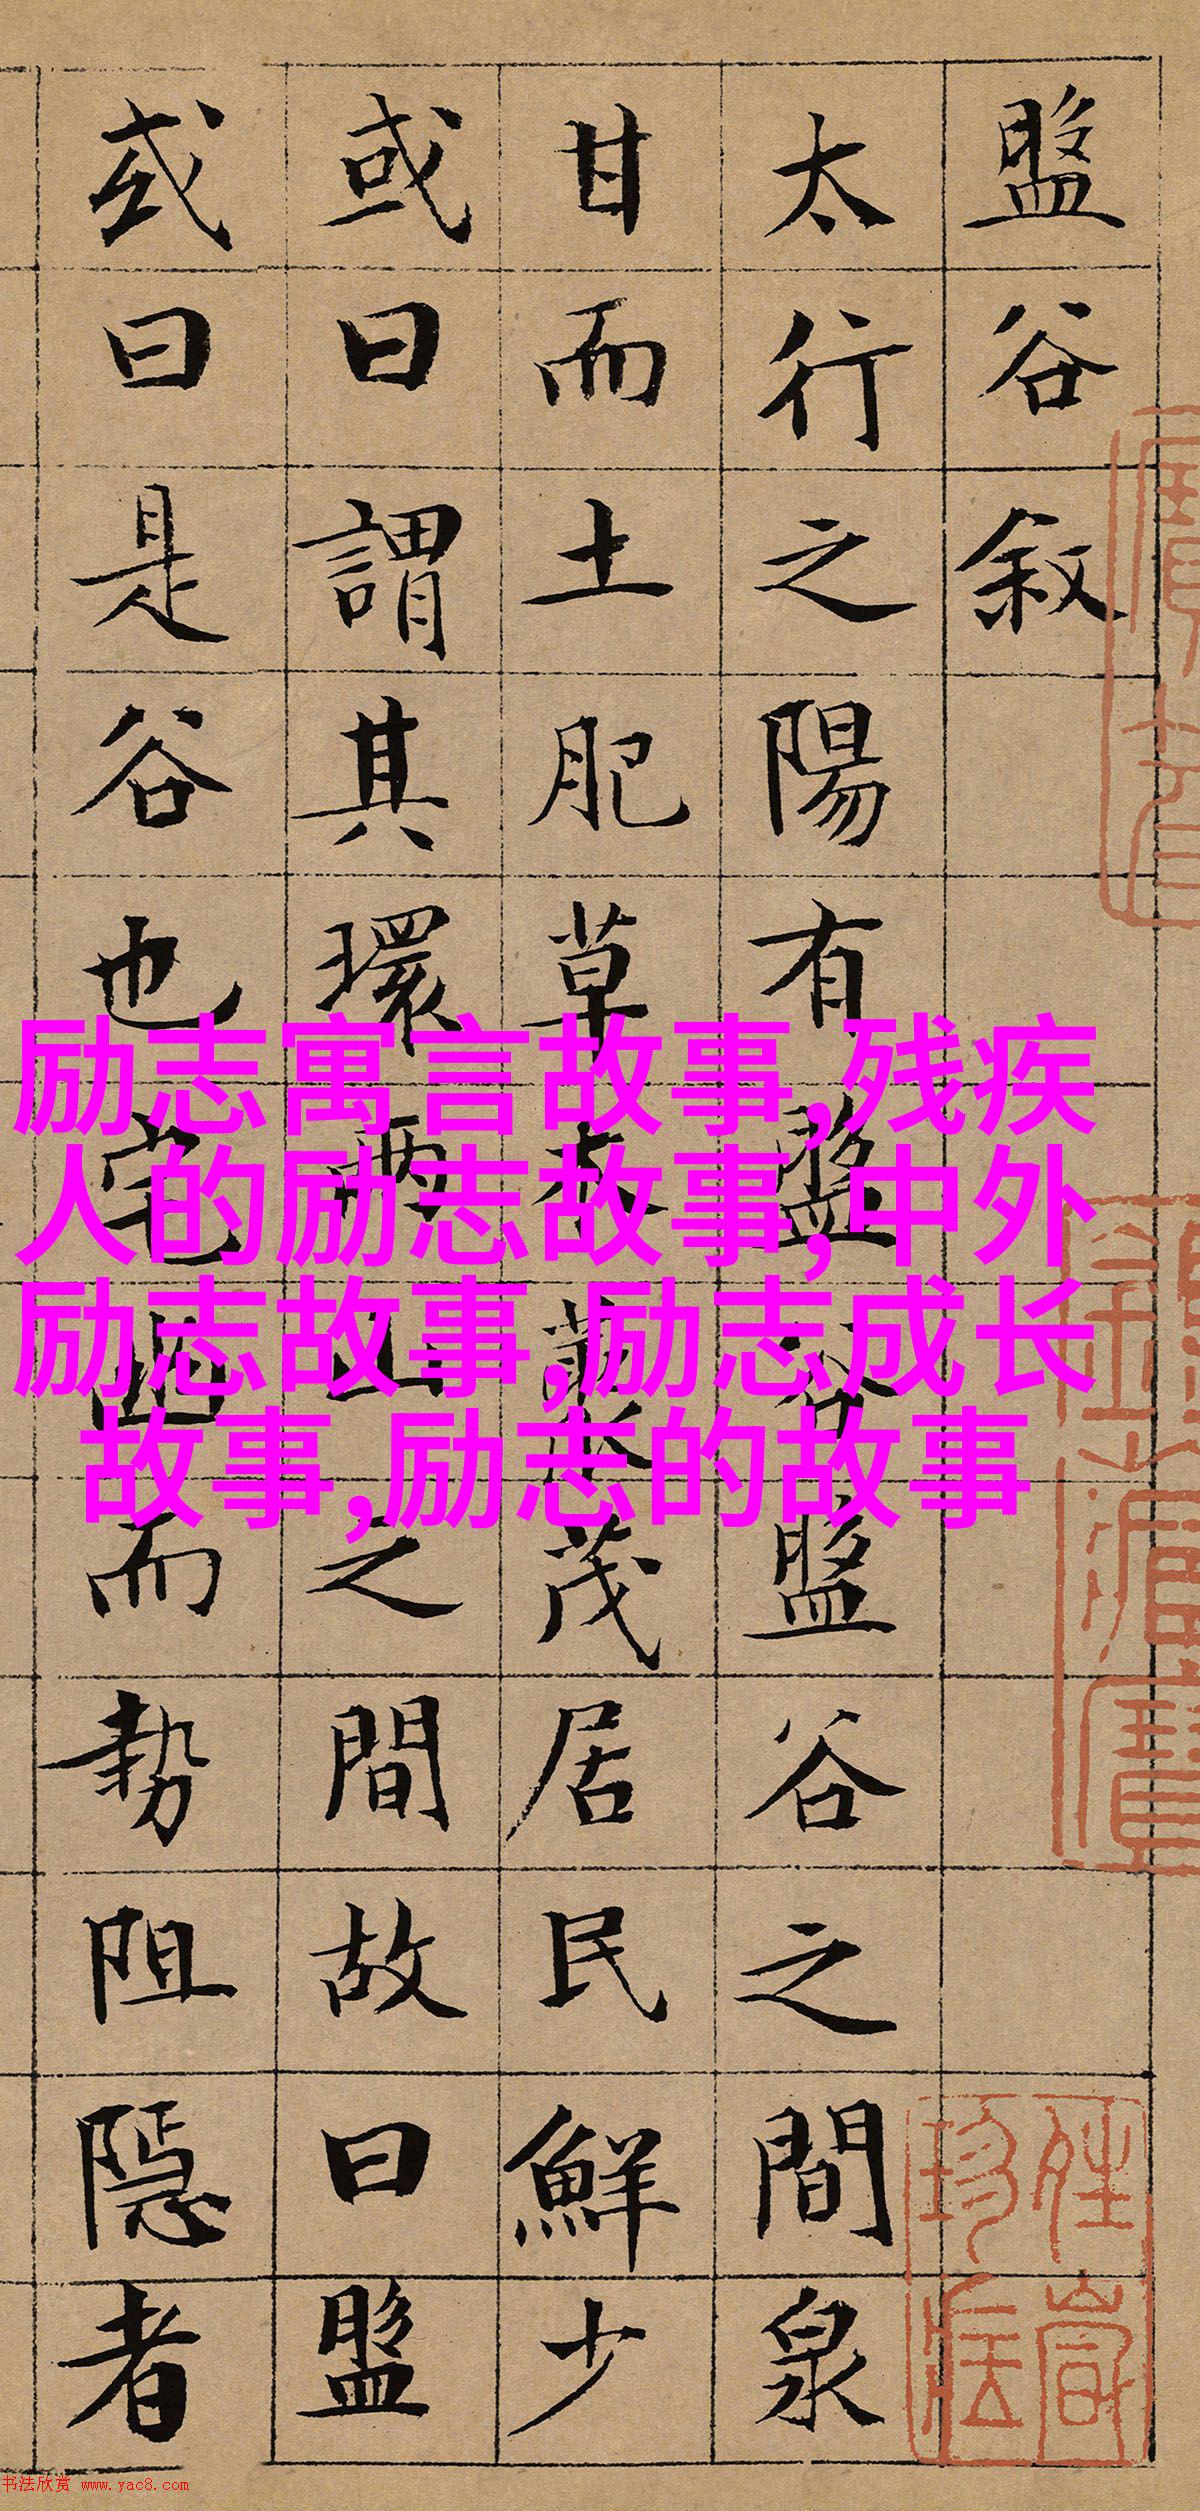 盤谷叙
太行之陽有盤谷盤谷之間泉
甘而土肥草木藂茂居民鮮少
或曰謂其環兩山之間故曰盤
或曰是谷也宅幽而勢阻隱者
励志寓言故事,残疾
人的励志故事,中外
励志故事,励志成长
故事,励志的故事
书法欣赏 www.yac8.com